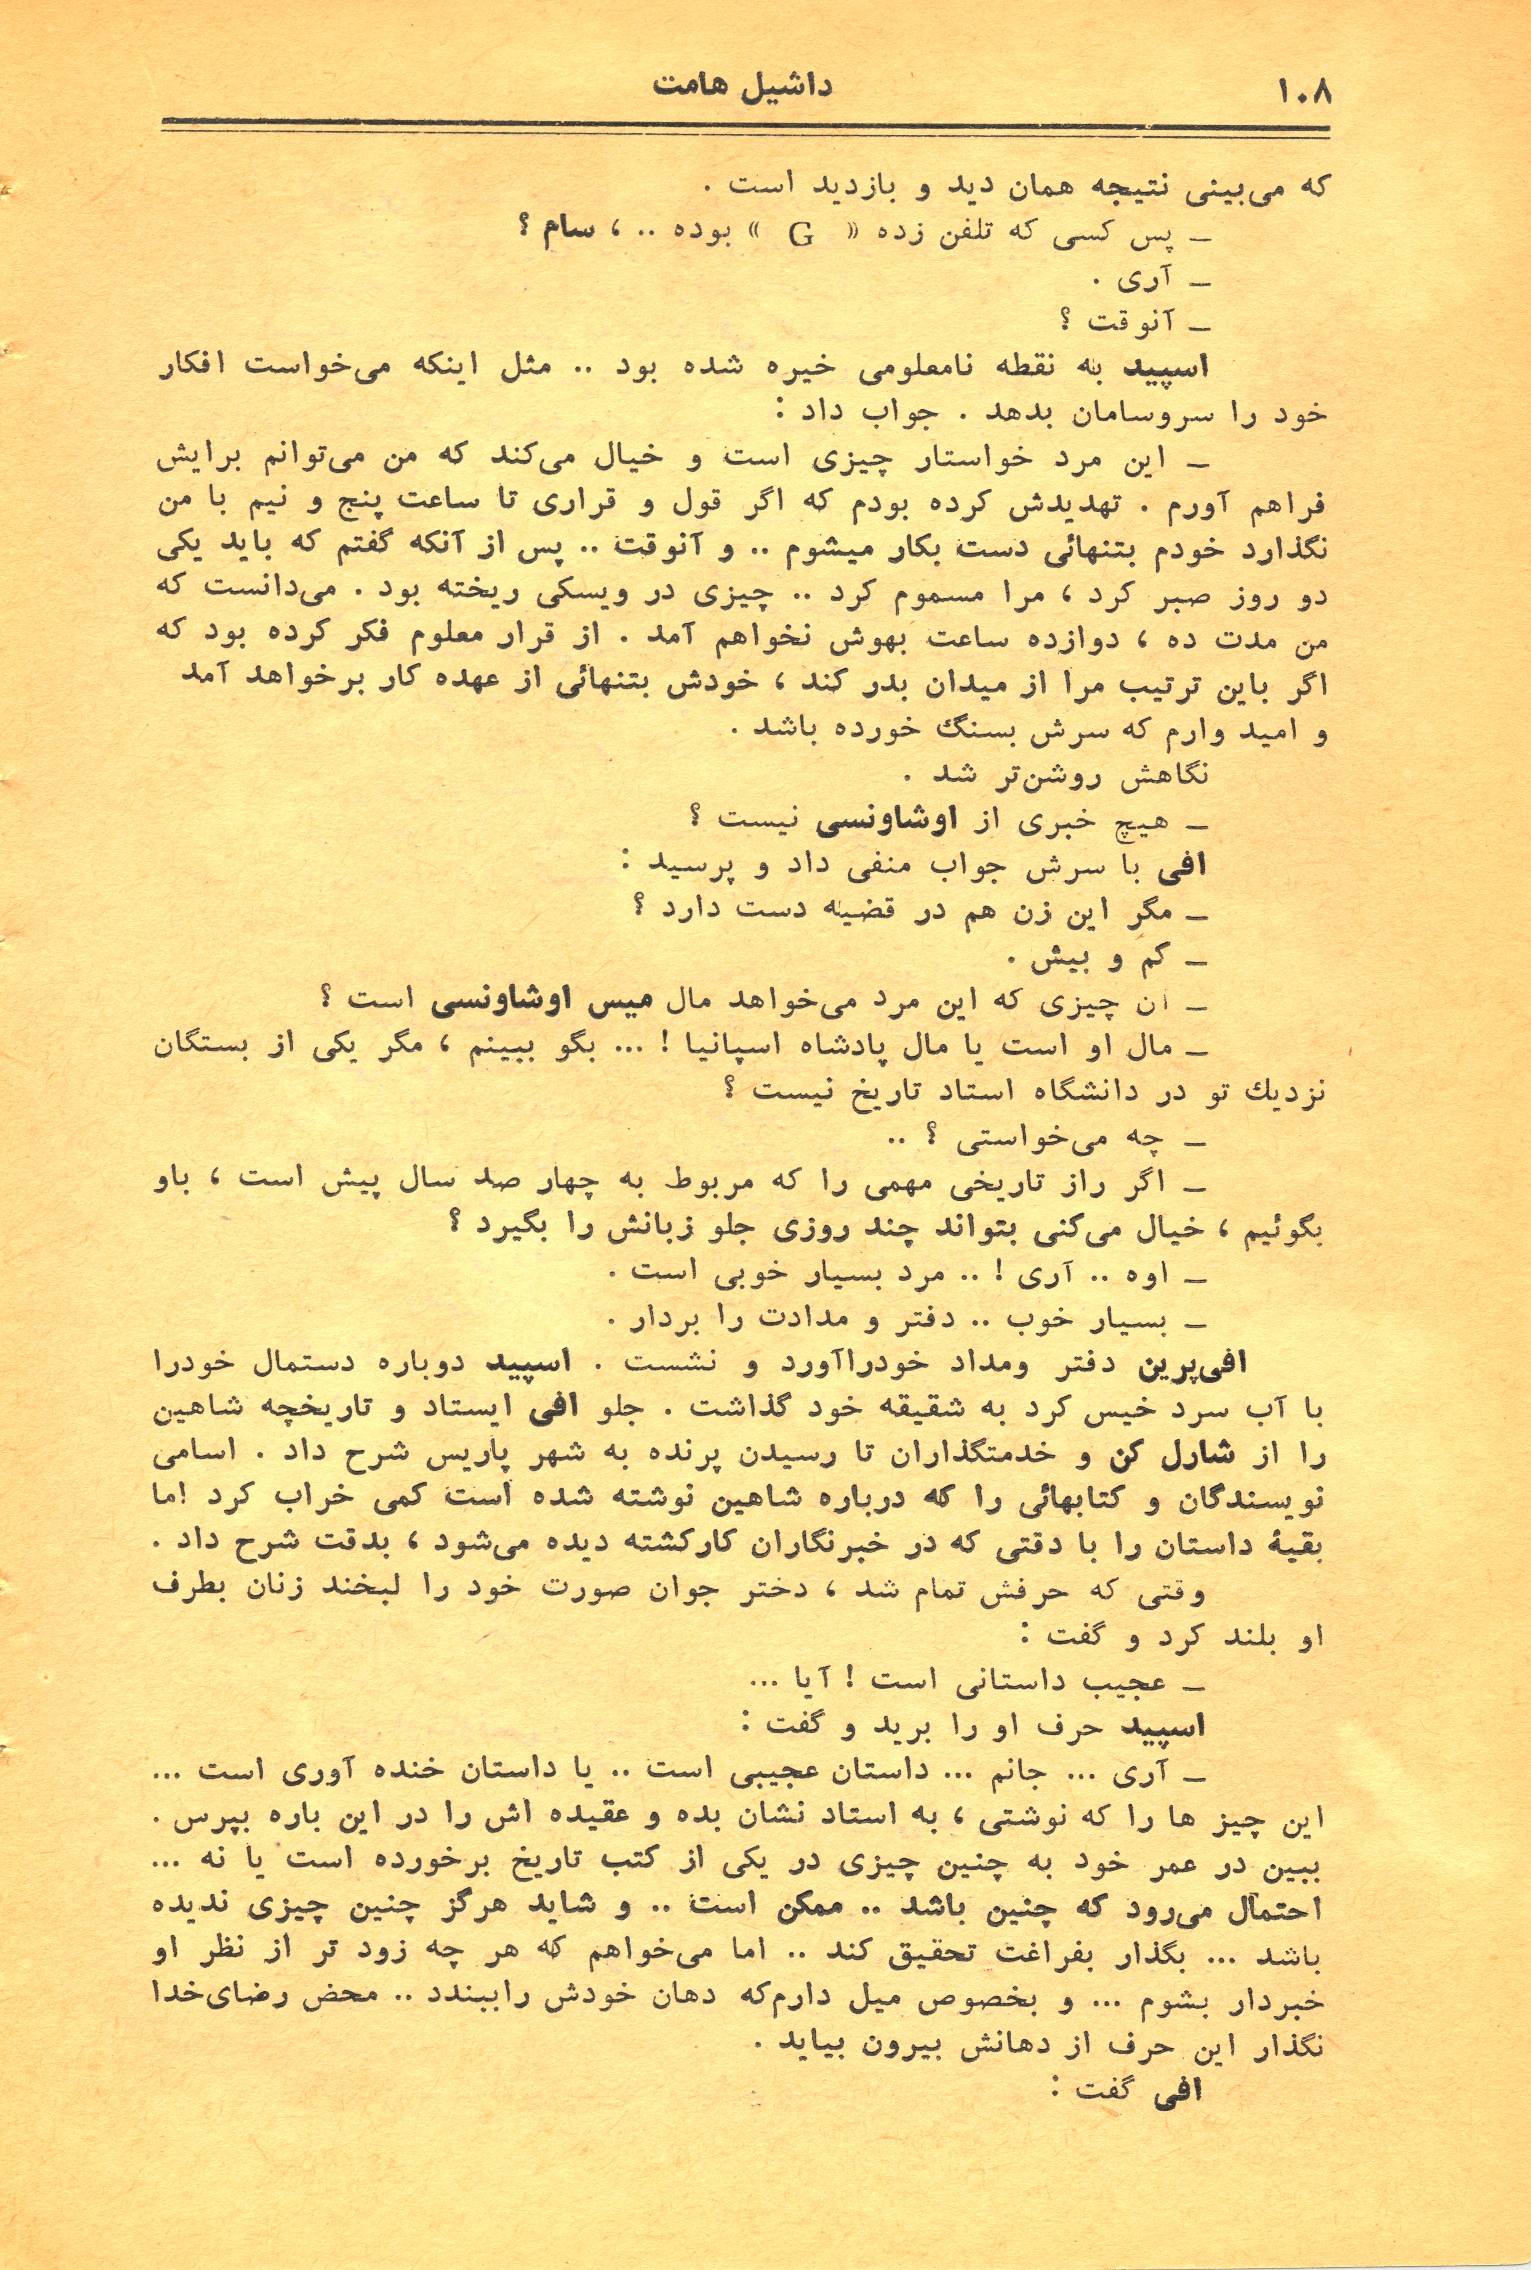 ۱۰۸
داشیل هامت
که می‌بینی نتیجه همان دید و بازدید است .
ــ پس کسی که تلفن زده « G » بوده .. ، سام ؟
ــ آری .
ــ آنوقت ؟
اسپید به نقطه نامعلومی خیره شده بود .. مثل اینکه می‌خواست افکار
خود را سروسامان بدهد . جواب داد :
ــ این مرد خواستار چیزی است و خیال می‌کند که من می‌توانم برایش
فراهم آورم . تهدیدش کرده بودم که اگر قول و قراری تا ساعت پنج و نیم با من
نگذارد خودم بتنهائی دست بکار میشوم .. و آنوقت .. پس از آنکه گفتم که باید یکی
دو روز صبر کرد ، مرا مسموم کرد .. چیزی در ویسکی ریخته بود . می‌دانست که
من مدت ده ، دوازده ساعت بهوش نخواهم آمد . از قرار معلوم فکر کرده بود که
اگر باین ترتیب مرا از میدان بدر کند ، خودش بتنهائی از عهده کار برخواهد آمد
و امید وارم که سرش بسنگ خورده باشد .
نگاهش روشن‌تر شد .
ــ هیچ خبری از اوشاونسی نیست ؟
افی با سرش جواب منفی داد و پرسید :
ــ مگر این زن هم در قضیه دست دارد ؟
ــ کم و بیش .
ــ آن چیزی که این مرد می‌خواهد مال میس اوشاونسی است ؟
ــ مال او است یا مال پادشاه اسپانیا ! ... بگو ببینم ، مگر یکی از بستگان
نزدیك تو در دانشگاه استاد تاریخ نیست ؟
ــ چه می‌خواستی ؟ ..
ــ اگر راز تاریخی مهمی را که مربوط به چهار صد سال پیش است ، باو
بگوئیم ، خیال می‌کنی بتواند چند روزی جلو زبانش را بگیرد ؟
ــ اوه .. آری ! .. مرد بسیار خوبی است .
ــ بسیار خوب .. دفتر و مدادت را بردار .
افی‌پرین دفتر ومداد خودراآورد و نشست . اسپید دوباره دستمال خودرا
با آب سرد خیس کرد به شقیقه خود گذاشت . جلو افی ایستاد و تاریخچه شاهین
را از شارل کن و خدمتگذاران تا رسیدن پرنده به شهر پاریس شرح داد . اسامی
نویسندگان و کتابهائی را که درباره شاهین نوشته شده است کمی خراب کرد اما
بقیهٔ داستان را با دقتی که در خبرنگاران کارکشته دیده می‌شود ، بدقت شرح داد .
وقتی که حرفش تمام شد ، دختر جوان صورت خود را لبخند زنان بطرف
او بلند کرد و گفت :
ــ عجیب داستانی است ! آیا ...
اسپید حرف او را برید و گفت :
ــ آری ... جانم ... داستان عجیبی است .. یا داستان خنده آوری است ...
این چیز ها را که نوشتی ، به استاد نشان بده و عقیده اش را در این باره بپرس .
ببین در عمر خود به چنین چیزی در یکی از کتب تاریخ برخورده است یا نه ...
احتمال می‌رود که چنین باشد .. ممکن است .. و شاید هرگز چنین چیزی ندیده
باشد ... بگذار بفراغت تحقیق کند .. اما می‌خواهم که هر چه زود تر از نظر او
خبردار بشوم ... و بخصوص میل دارم‌که دهان خودش راببندد .. محض رضای‌خدا
نگذار این حرف از دهانش بیرون بیاید .
افی گفت :